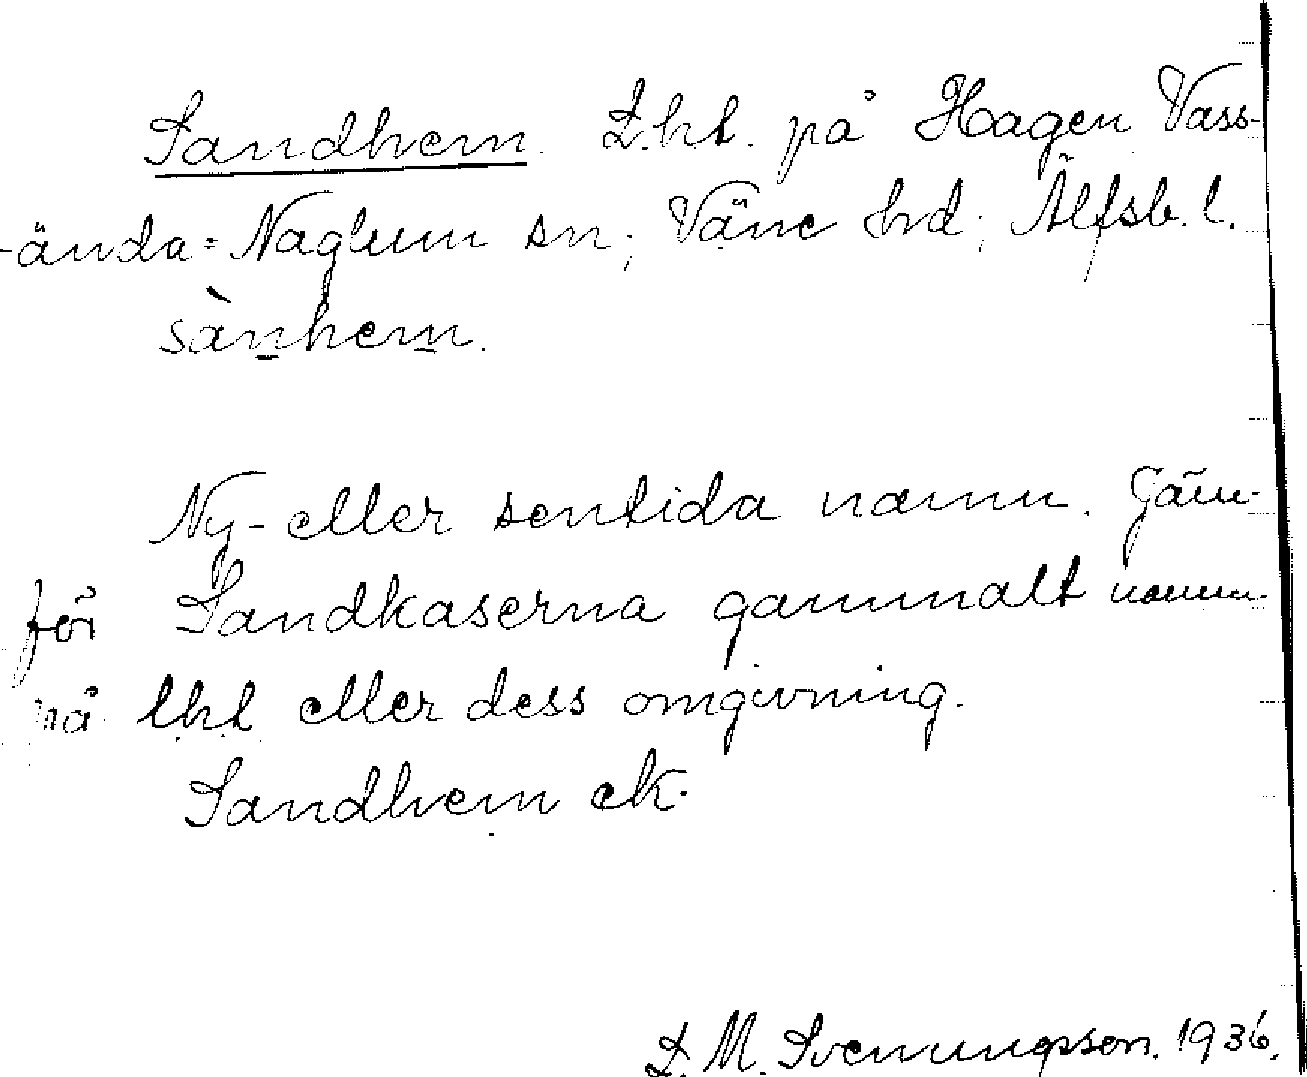 Sandhem. L.ht. på Hagen Vass-
-ända-Naglum sn; Väne hd; Älfsb. l.
sànhem.
Ny- eller sentida namn. Jäm-
för Sandkaserna gammalt namn
på lht eller dess omgivning.
Sandhem ek.
L. M. Svenungsson. 1936.